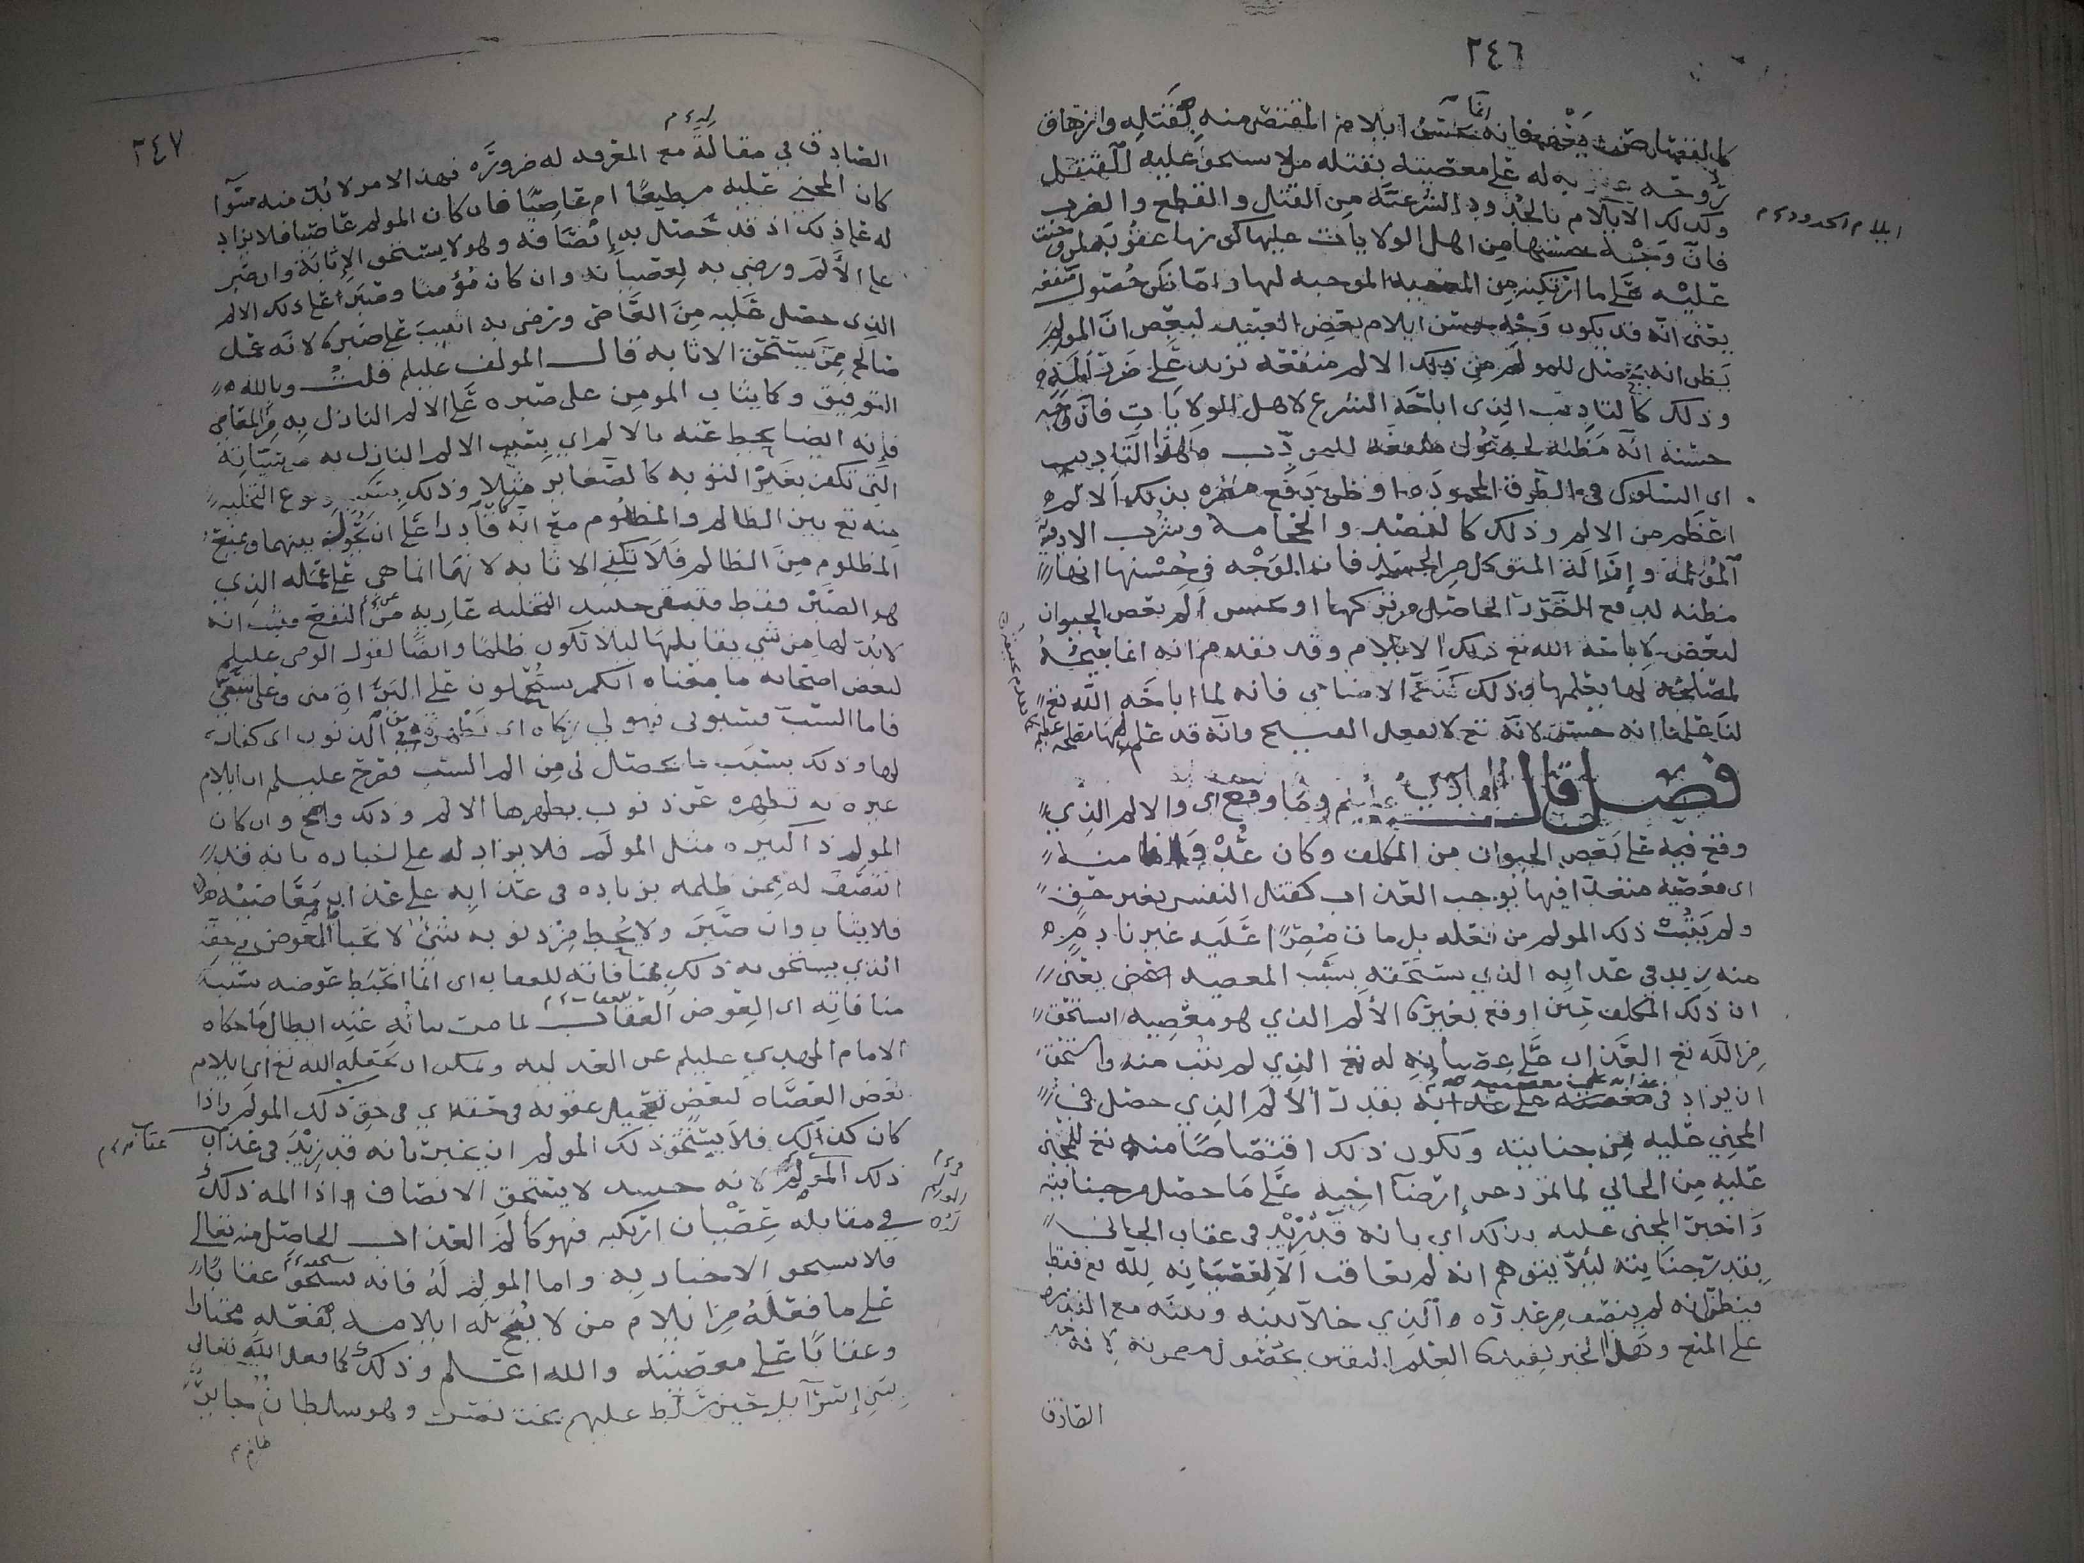 ٢٤٦
كالقصاص فانه انما حسن ايلام المقتص منه بقتله وازهاق
روحه به له على معصيته بقتله من لا يستحق عليه القتل
وكذلك الايلام بالحدود الشرعية من القتل والقطع والضرب
ايلام الحدود
فان وجه حسنها من اهل الولايات عليها كونها عقوبة
عليه على ما ارتكبه من المعصية الموجبة لها واما لحصول منفعة
يعني انه قد يكون وجه حسن ايلام بعض العبيد لبعض ان المولم
يظن انه يحصل للمولم من ذلك الالم منفعة تزيد على ضرر المه
وذلك كالتاديب الذي اباحه الشرع لاهل الولايات فان وجه
حسنه انه مظنة لحصول منفعة للمودب بهذا التاديب
اي السلوك في الطرق المحمودة او ظن دفع مضرة بذلك الالم
اعظم من الالم وذلك كالفصد والحجامة وشرب الادوية
المؤلمة وازالة المتوكل من الجسد فان الوجه في حسنها انها
مظنة لدفع الضرر الحاصل من تركها او يحسن الم بعض الحيوان
لبعض لاباحة الله تع ذلك الايلام وقد تقدم انه انما يبيحه
لمصلحة لها يعلمها وذلك كذبح الاضاحي فانه لما اباحه الله تع
لنا علمنا انه حسن لانه تع لا يفعل القبيح وانه قد علم لها مصلحة
فصل قال الهادي عليلم وما وقع اي والالم الذي
وقع فيه على بعض الحيوان من المكلف وكان عدوانا منه
اي معصية متعديا فيها توجب العذاب كقتل النفس بغير حق
ولم يتب ذلك المولم من فعله بل مات مصرا عليه غير نادم
منه زيد في عذابه الذي يستحقه بسبب المعصية يعني
ان ذلك المكلف حين اوقع بغيره الألم الذي هو معصية استحق
من الله تع العذاب على عصيانه له تع الذي لم يتب منه واستحق
ان يزاد في عذابه على معصيته بقدر الألم الذي حصل في
المجني عليه من جنايته ويكون ذلك اقتصاصا منه تع للمجني
عليه من الجاني على ما حصل من جنايته
واخبر المجني عليه بذلك اي بانه قد زيد في عقاب الجاني
بقدر جنايته لئلا يتوهم انه لم يعاقب الا لعصيانه لله تع فقط
فيظن انه لم ينصف من عدوه والذي خلا بينه وبينه مع القدرة
على المنع وهذا الخبر يفيد العلم اليقين بحصول مضمونه لانه
القاذف
٢٤٧
الصادق في مقالة مع المعرفة له ضرورة فهذا الامر لا بد منه سوا
كان المجني عليه مطيعا ام عاصيا فان كان المولم عاصيا فلا يزاد
له على ذلك اذ قد حصل به انصافه وهو لا يستحق الاثابة وان صبر
على الألم ورضي به لعصيانه وان كان مؤمنا وصبر على ذلك الالم
الذي حصل عليه من العاصي ورضي به اثيب على صبره لانه عمل
صالح ممن يستحق الاثابة قال المولف عليلم قلت وبالله
التوفيق وكما يثاب المومن على صبره على الالم النازل به من العاصي
فانه ايضا يحط عنه بالالم اي بسبب الالم النازل به سيئاته
التي تكفر بغير التوبة كالصغاير مثلا وذلك بسبب وقوع التخلية
منه تع بين الظالم والمظلوم مع انه قادر على ان يحول بينهما ويمنع
المظلوم من الظالم فلا تكفي الاثابة لانها انما هي على عمله الذي
هو الصبر فقط فتبقى حينئذ التخلية عارية عن النفع فثبت انه
لا بد لها من شي يقابلها ليلا تكون ظلما وايضا لقول الوصي عليلم
لبعض اصحابه ما معناه انكم ستحملون على البراءة مني وعلى سبي
فاما السب فسبوني فهو لي زكاه اي تطهره من الذنوب اي كفارة
لها وذلك بسبب ما يحصل لي من الم السب فصرح عليلم ان ايلام
غيره به تطهره عن ذنوب يطهرها الالم وذلك واضح وان كان
المولم ذا كبيرة مثل المولم فلا يزاد له على اخباره بانه قد
انتصف له ممن ظلمه بزيادة في عذابه على عذاب معاصيه
فلا يثاب وان صبر ولا يحط من ذنوبه شيء لانحباط العوض في حقه
الذي يستحق به ذلك بمنافاته للعقاب اي انما انحبط عوضه بسبب
منافاته اي العوض العقاب لما مر بيانه عند ابطال ما حكاه
الامام المهدي عليلم عن العدلية ويمكن ان يجعل الله تع ايلام
بعض العصاة لبعض تعجيل عقوبة في حقه اي في حق ذلك المولم واذا
كان كذلك فلا يستحق ذلك المولم ان يخبر بانه قد زيد في عذاب
ذلك المولم لانه حينئذ لا يستحق الانصاف اذا المه ذلك
في مقابلة عصيان ارتكبه فهو كألم العذاب الحاصل منه تعالى
فلا يستحق الاخبار به واما المولم له فانه يستحق عقابا
على ما فعله من ايلام من لا يبح له ايلامه بفعله مختارا
وعقابا على معصيته والله اعلم وذلك كما فعل الله تعالى
ببني إسرآئيل حين سلط عليهم بخت نصر وهو سلطان جاير
ظالم